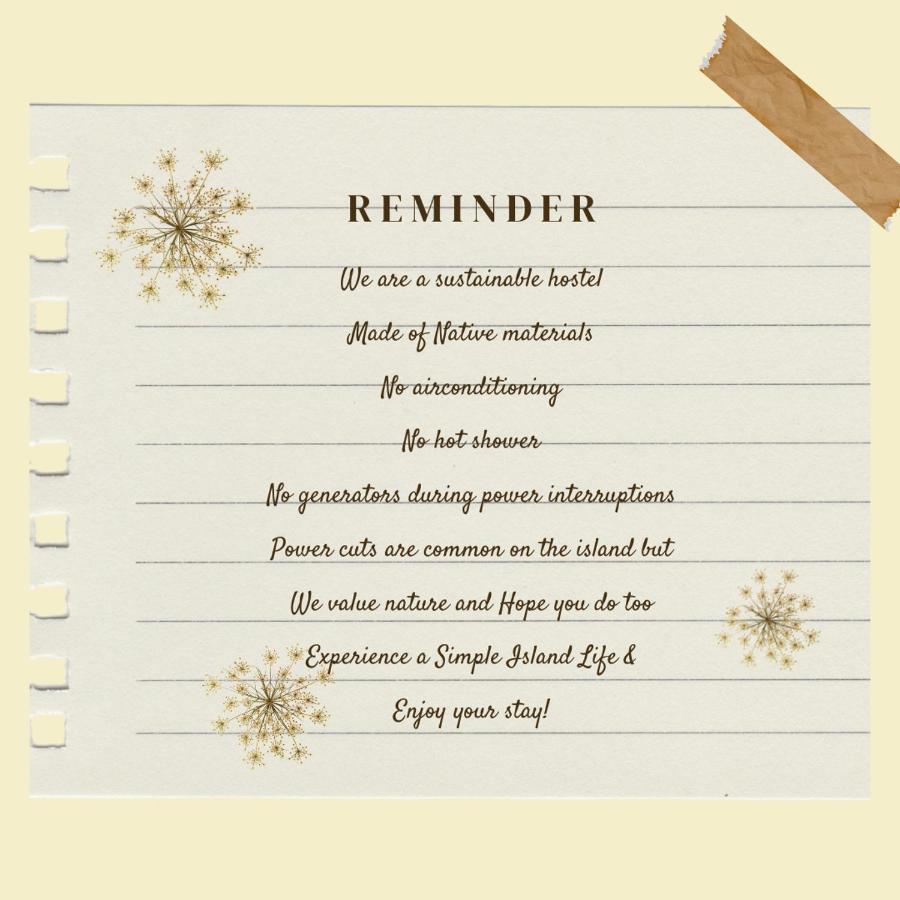 REMINDER
We are a sustainable hostel
Made of Native materials
No airconditioning
No hot shower
No generators during power interruptions
Power cuts are common on the island but
We value nature and Hope you do too
Experience a Simple Island Life &
Enjoy your stay!